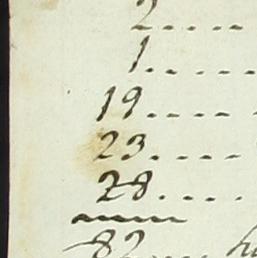 2....
1.....
19....
23....
28....
82....